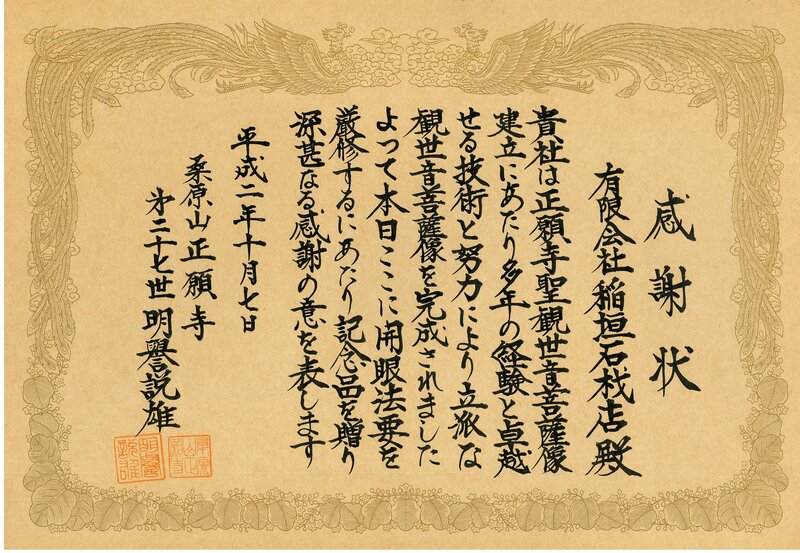 感謝状
有限会社稲垣石材店殿
貴社は正願寺聖観世音菩薩像
建立にあたり多年の経験と卓越
せる技術と努力により立派な
観世音菩薩像を完成されました
よって本日ここに開眼法要を
厳修するにあたり記念品を贈り
深甚なる感謝の意を表します
平成二年十月七日
桑原山正願寺
第二十七世明誉説雄